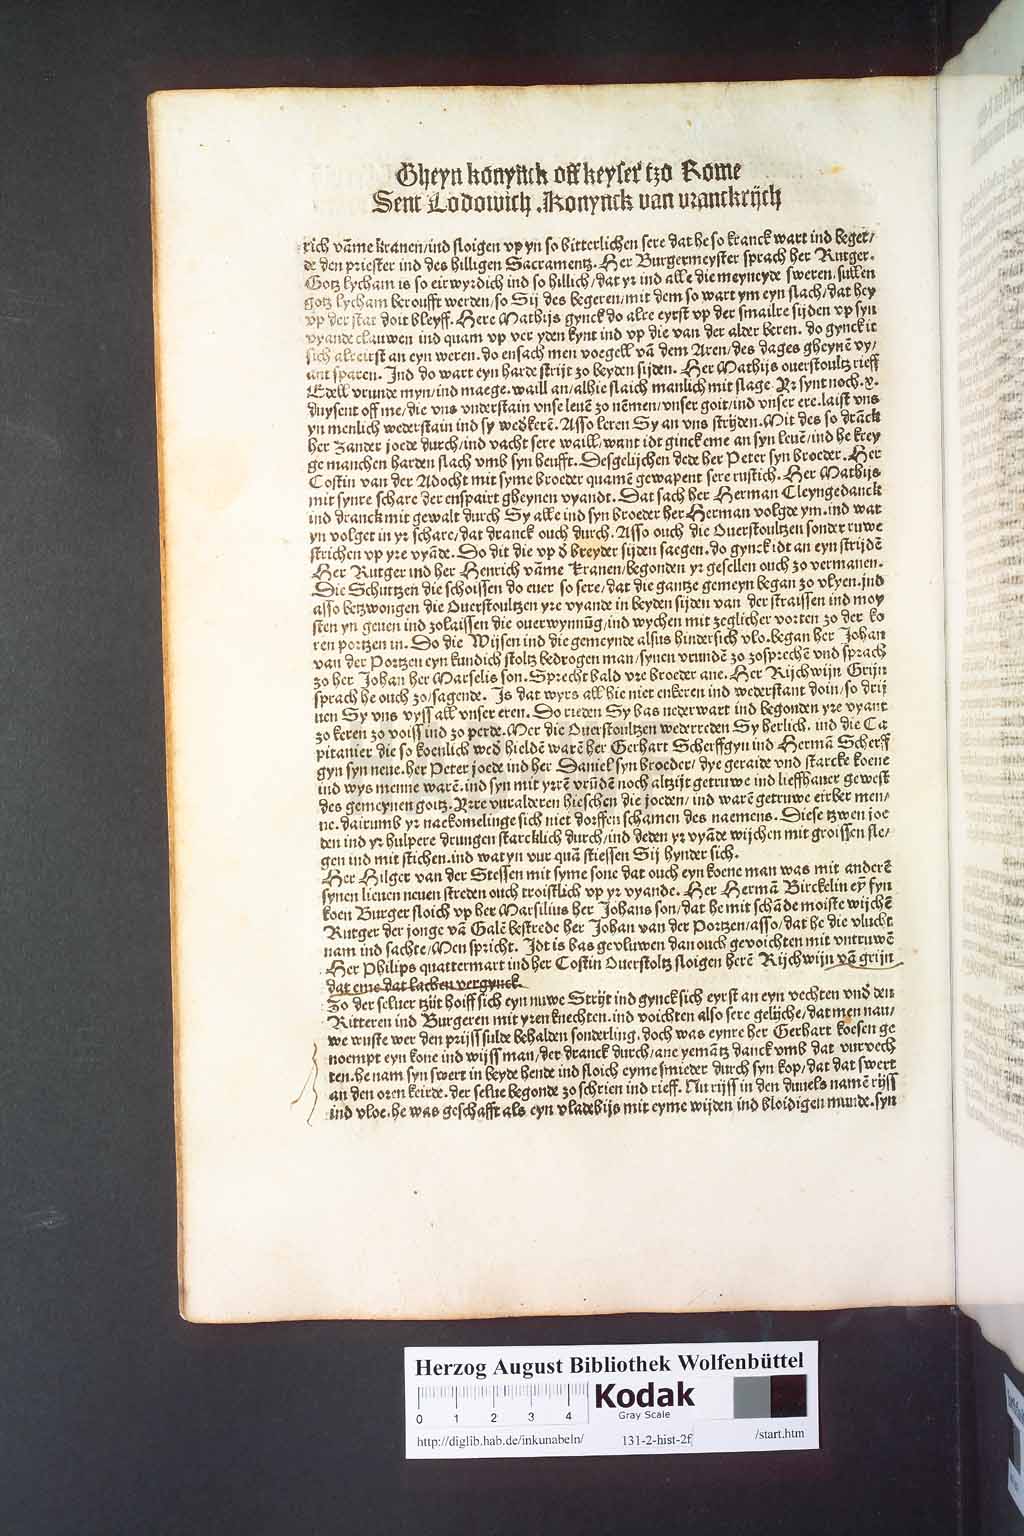 Gheyn konynck off keyser tzo Rome
Sent Lodowich .Konynck van vranckrijch
rich vāme kranen/ind sloigen vp yn so bitterlichen sere dat he so kranck wart ind beger/
de den priester ind des hilligen Sacramentz. Her Burgermeyster sprach her Rutger.
Gotz lycham is so eirwyrdich ind so hillich/dat yr ind alle die meyneyde sweren. sullen
gotz lycham beroufft werden/so Sij des begeren/mit dem so wart ym eyn slach/dat hey
vp der stat doit bleyff. Here Mathijs gynck do alre eyrst vp der smailre sijden vp syn
vyande clauwen ind quam vp ver yden kynt ind vp die van der alder beren. do gynck it
sich alreirst an eyn weren. do ensach men voegell vā dem Aren/des dages gheynē vy/
ant sparen. Ind do wart eyn harde strijt zo beyden sijden. Her Mathijs ouerstoultz rieff
Edell vrunde myn/ind maege. waill an/alhie slaich manlich mit slage. Yr synt noch .x.
duysent off me/die vns vnderstain vnse leuē zo nēmen/vnser goit/ind vnser ere. laist vns
yn menlich wederstain ind sy wedkerē. Asso leren Sy an vns strijden. Mit des so drāck
her Zander joede durch/ind vacht sere waill/want idt ginck eme an syn leuē/ind he krey
ge manchen harden slach vmb syn heufft. Desgelijchen dede her Peter syn broeder. Her
Costin van der Adocht mit syme broeder quamē gewapent sere rustich. Her Mathijs
mit synre schare der enspairt gheynen vyandt. Dat sach her Herman Cleyngedanck
ind dranck mit gewalt durch Sy alle ind syn broeder her Herman volgde ym. ind wat
yn volget in yr schare/dat dranck ouch durch. Asso ouch die Ouerstoultzen sonder ruwe
strichen vp yre vyāde. Do dit die vp d̄ breyder sijden saegen. do gynck idt an eyn strijdē
Her Rutger ind her Henrich vāme Kranen/begonden yr gesellen ouch zo vermanen.
Die Schutzen die schoissen do euer so sere/dat die gantze gemeyn began zo vlyen. ind
asso betzwongen die Ouerstoultzen yre vyande in beyden sijden van der straissen ind moy
sten yn geuen ind zolaissen die ouerwynnūg/ind wychen mit zeglicher vorten zo der ko
ren portzen in. Do die Wijsen ind die gemeynde alsus hindersich vlo. began her Johan
van der Portzen eyn kundich stoltz bedrogen man/synen vrundē zo zosprechē vnd sprach
zo her Johan her Marselis son. Sprecht bald vre broeder ane. Her Rijchwijn Grijn
sprach he ouch zo/sagende. Is dat wyrs all hie niet enkeren ind wederstant doin/so drij
uen Sy vns vyss all vnser eren. Do rieden Sy bas nederwart ind begonden yre vyant
zo keren zo voiss ind zo perde. Mer die Ouerstoultzen wederreden Sy herlich. ind die Ca
pitanier die so koenlich wed hieldē warē her Gerhart Scherffgyn ind Hermā Scherff
gyn syn neue. her Peter joede ind her Daniel syn broeder/ dye geraide vnd starcke koene
ind wys menne warē. ind syn mit yrrē vrūdēn noch altzijt getruwe ind lieffhauer gewest
des gemeynen goitz. Yrre vuralderen hieschen die joeden/ ind warē getruwe eirber men/
ne. dairumb yr naekomelinge sich niet dorffen schamen des naemens. Diese tzwen joe
den ind yr hulpere drungen starcklich durch/ind deden yr vyāde wijchen mit groissen sle/
gen ind mit stichen. ind wat yn vur quā stiessen Sij hynder sich.
Her Hilger van der Stessen mit syme sone dat ouch eyn koene man was mit anderē
synen lieuen neuen streden ouch troistlich vp yr vyande. Her Hermā Birckelin eȳ fyn
koen Burger sloich vp her Marsilius her Johans son/dat he mit schāde moiste wijchē
Rutger der jonge vā Galē bestrede her Johan van der Portzen/asso/dat he die vlucht
nam ind sachte/Men spricht. Idt is bas gevluwen dan ouch gevoichten mit vntruwē
Her Philips quattermart ind her Costin Ouerstoltz sloigen herē Rijchwijn vā grijn
dat eme dat lachen vergynck.
Zo der seluer tzijt hoiff sich eyn nuwe Strijt ind gynck sich eyrst an eyn vechten vnd den
Ritteren ind Burgeren mit yren knechten. ind voichten also sere gelijche/dat men nau/
we wuste wer den prijss sulde behalden sonderling. doch was eynre her Gerhart koesen ge
noempt eyn kone ind wijss man/der dranck durch/ane yemātz danck vmb dat vurvech
ten. he nam syn swert in beyde hende ind sloich eyme smieder durch syn kop/dat dat swert
an den oren keirde. der selue begonde zo schrien ind rieff. Nu rijss in den duuels namē rijss
ind vloe. he was geschafft als eyn vladebijs mit eyme wijden ind bloidigen munde. syn
Herzog August Bibliothek Wolfenbüttel
0 1 2 3 4
Kodak
Gray Scale
http://diglib.hab.de/inkunabeln/ 131-2-hist-2f /start.htm